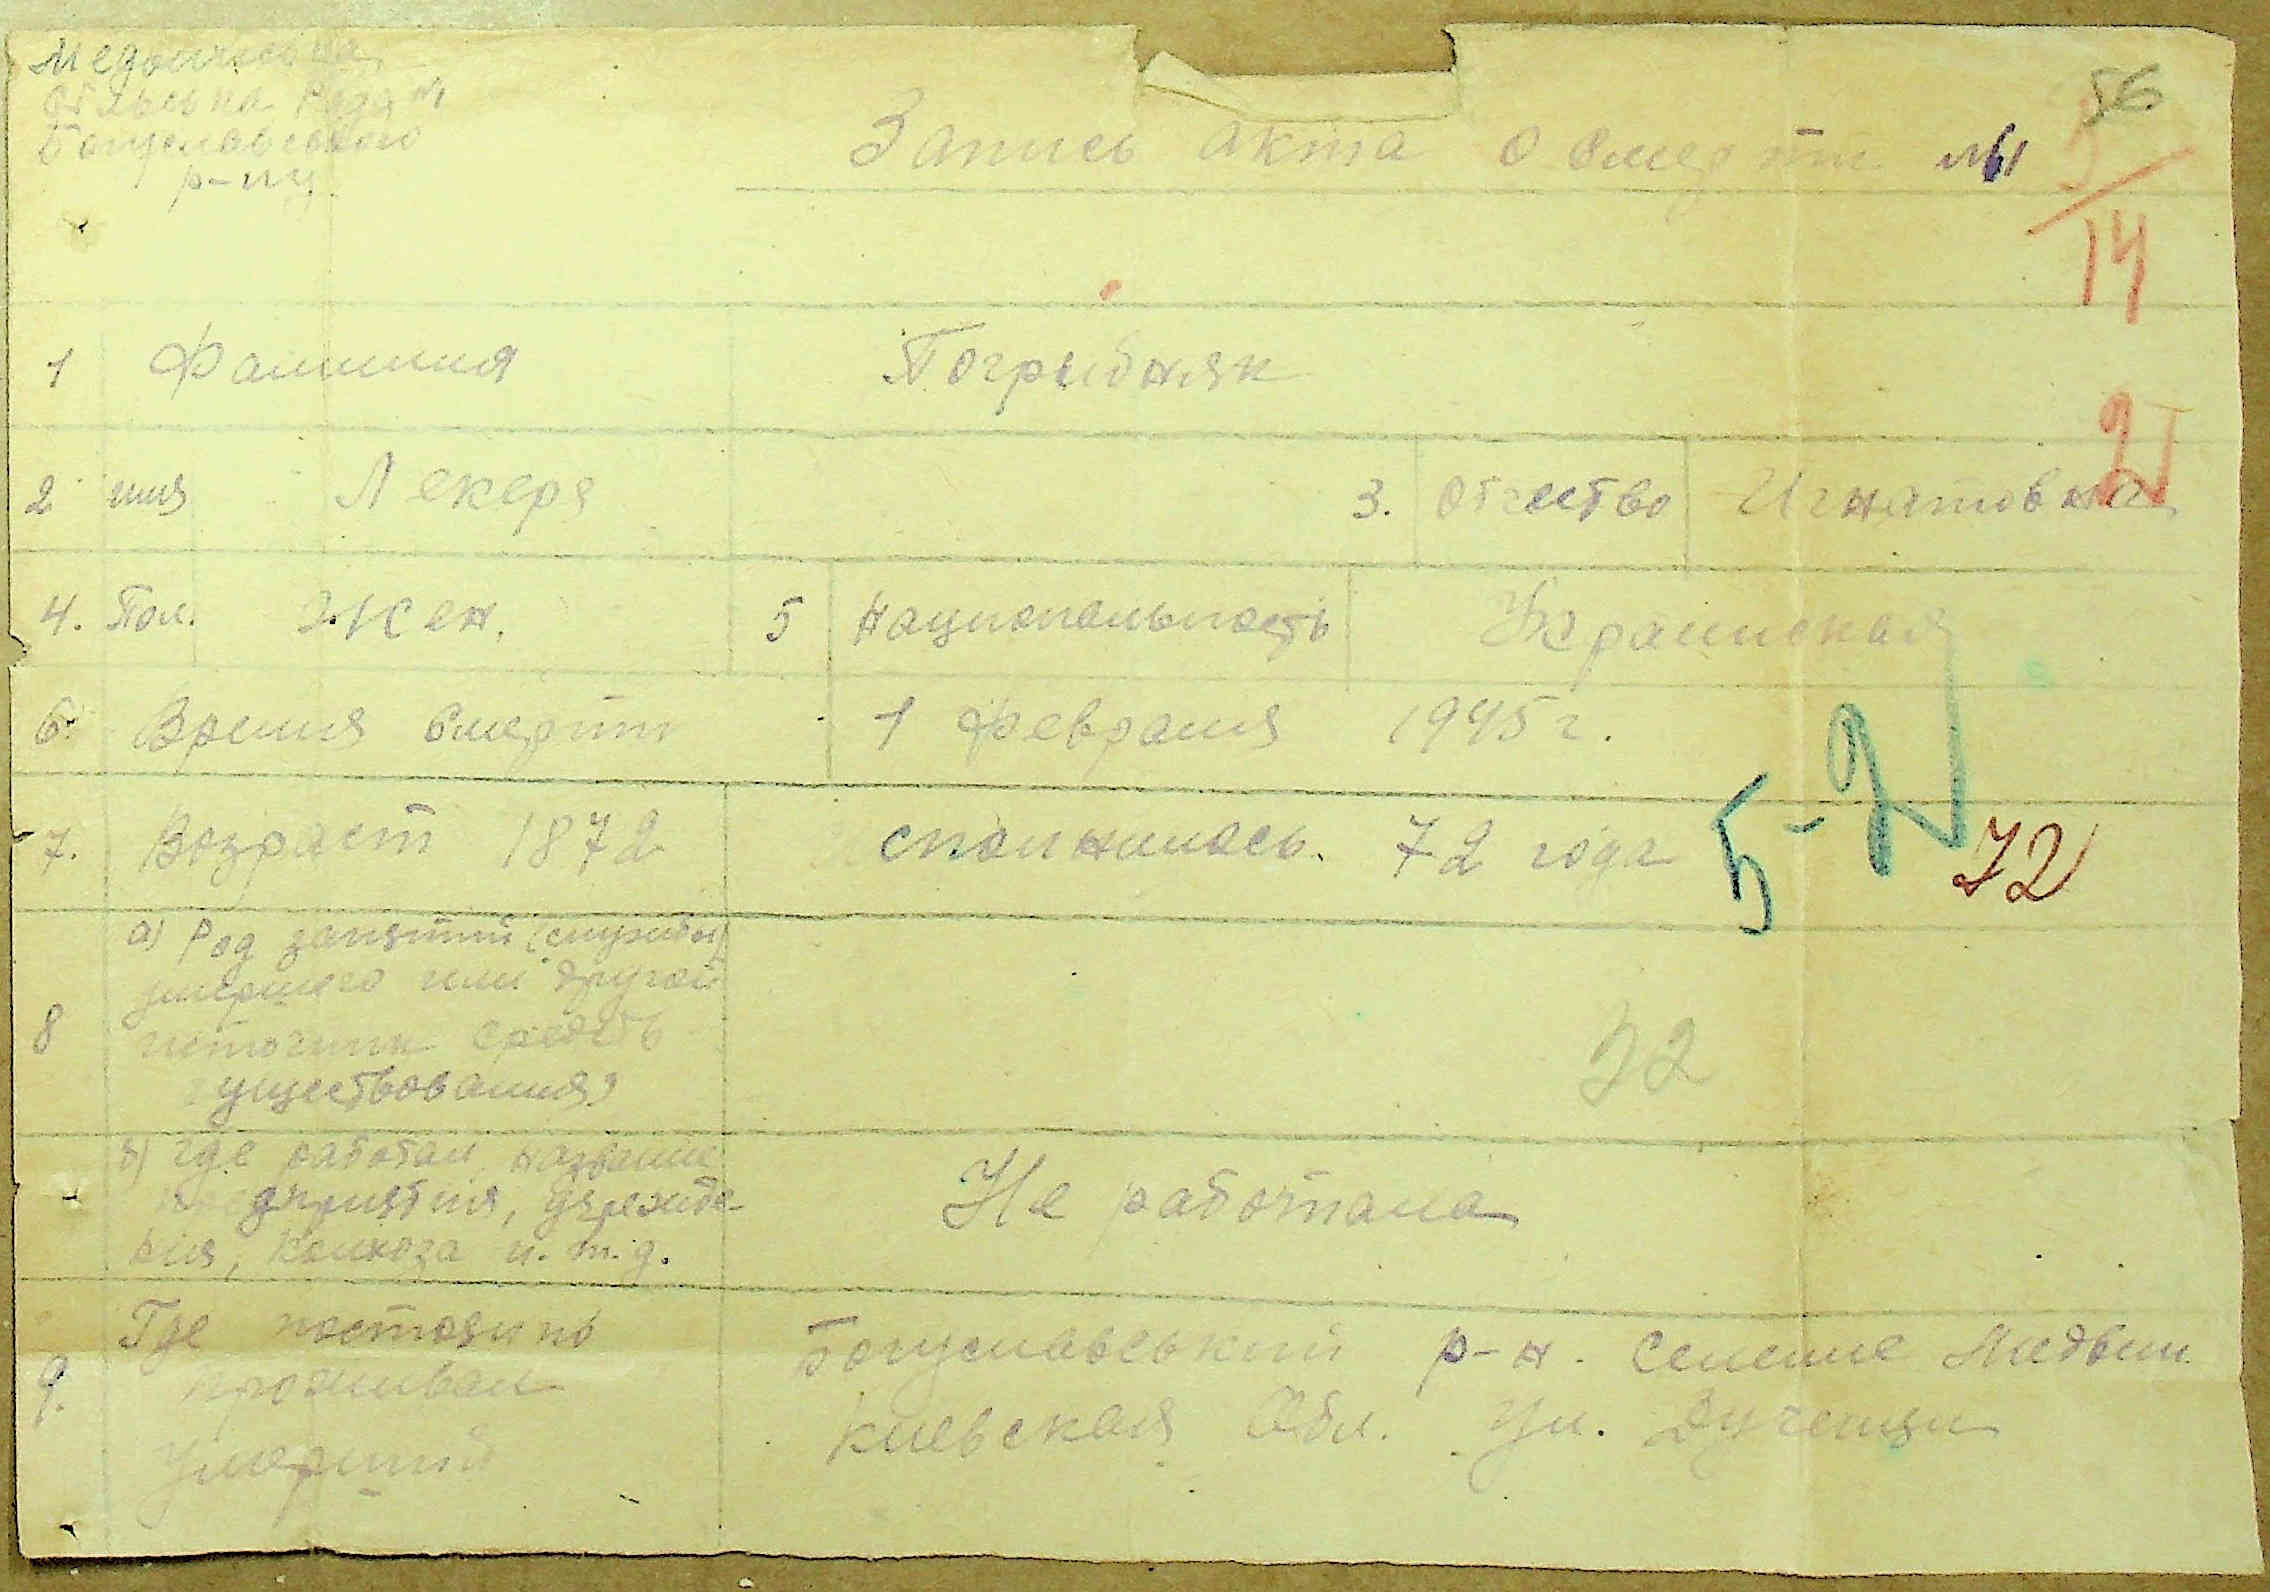 Медвинська
сільська Рада №1
Богуславського
р-ну.
56
Запись акта о смерти №1
14
1 Фамилия Погрыбняк
2 имя Лекеря 3. Отчество Игнатовна
4. Пол. Жен. 5 Национальность Украинская
6. Время смерти 1 февраля 1945 г.
7. Возраст 1872 сполнилось. 72 года 5-2 72
8 а) Род занятий (службы)
умершего или другой
источник средств
существования)
б) где работал, название
предприятия, учрежде-
ния, колхоза и. т. д. Не работала
9. Где постояно
проживал
умерший
Богуславський р-н. Селение Медвин
Киевская Обл. Ул.